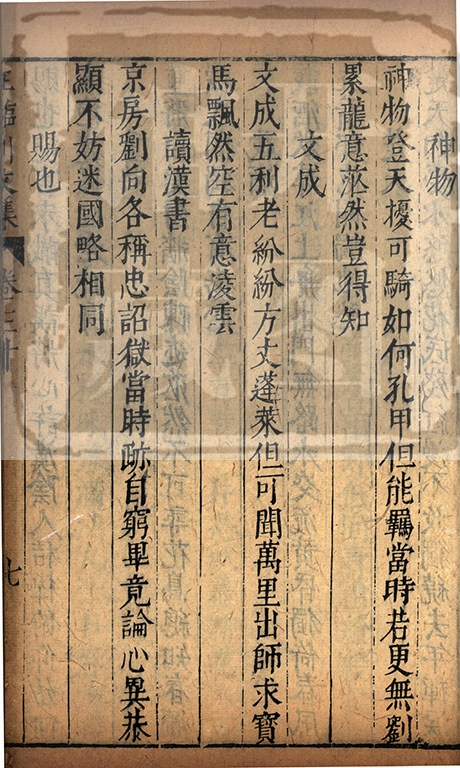 神物
神物登天擾可騎如何孔甲但能羈當時若更無劉
累龍意茫然豈得知
文成
文成五利老紛紛方丈蓬萊但可聞萬里出師求寶
馬飄然空有意淩雲
讀漢書
京房劉向各稱忠詔獄當時跡自窮畢竟論心異恭
顯不妨迷國略相同
賜也
卷三十
七